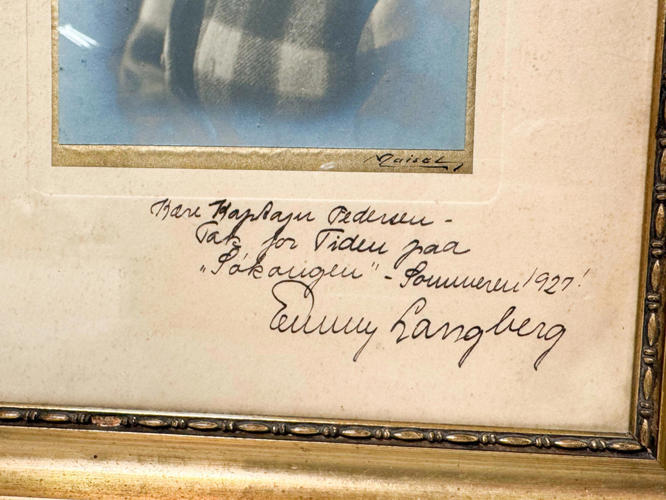 Maisel
Kære Kaptajn Pedersen -
Tak for Tiden paa
„Søkongen" - Sommeren 1927!
Emmy Langberg